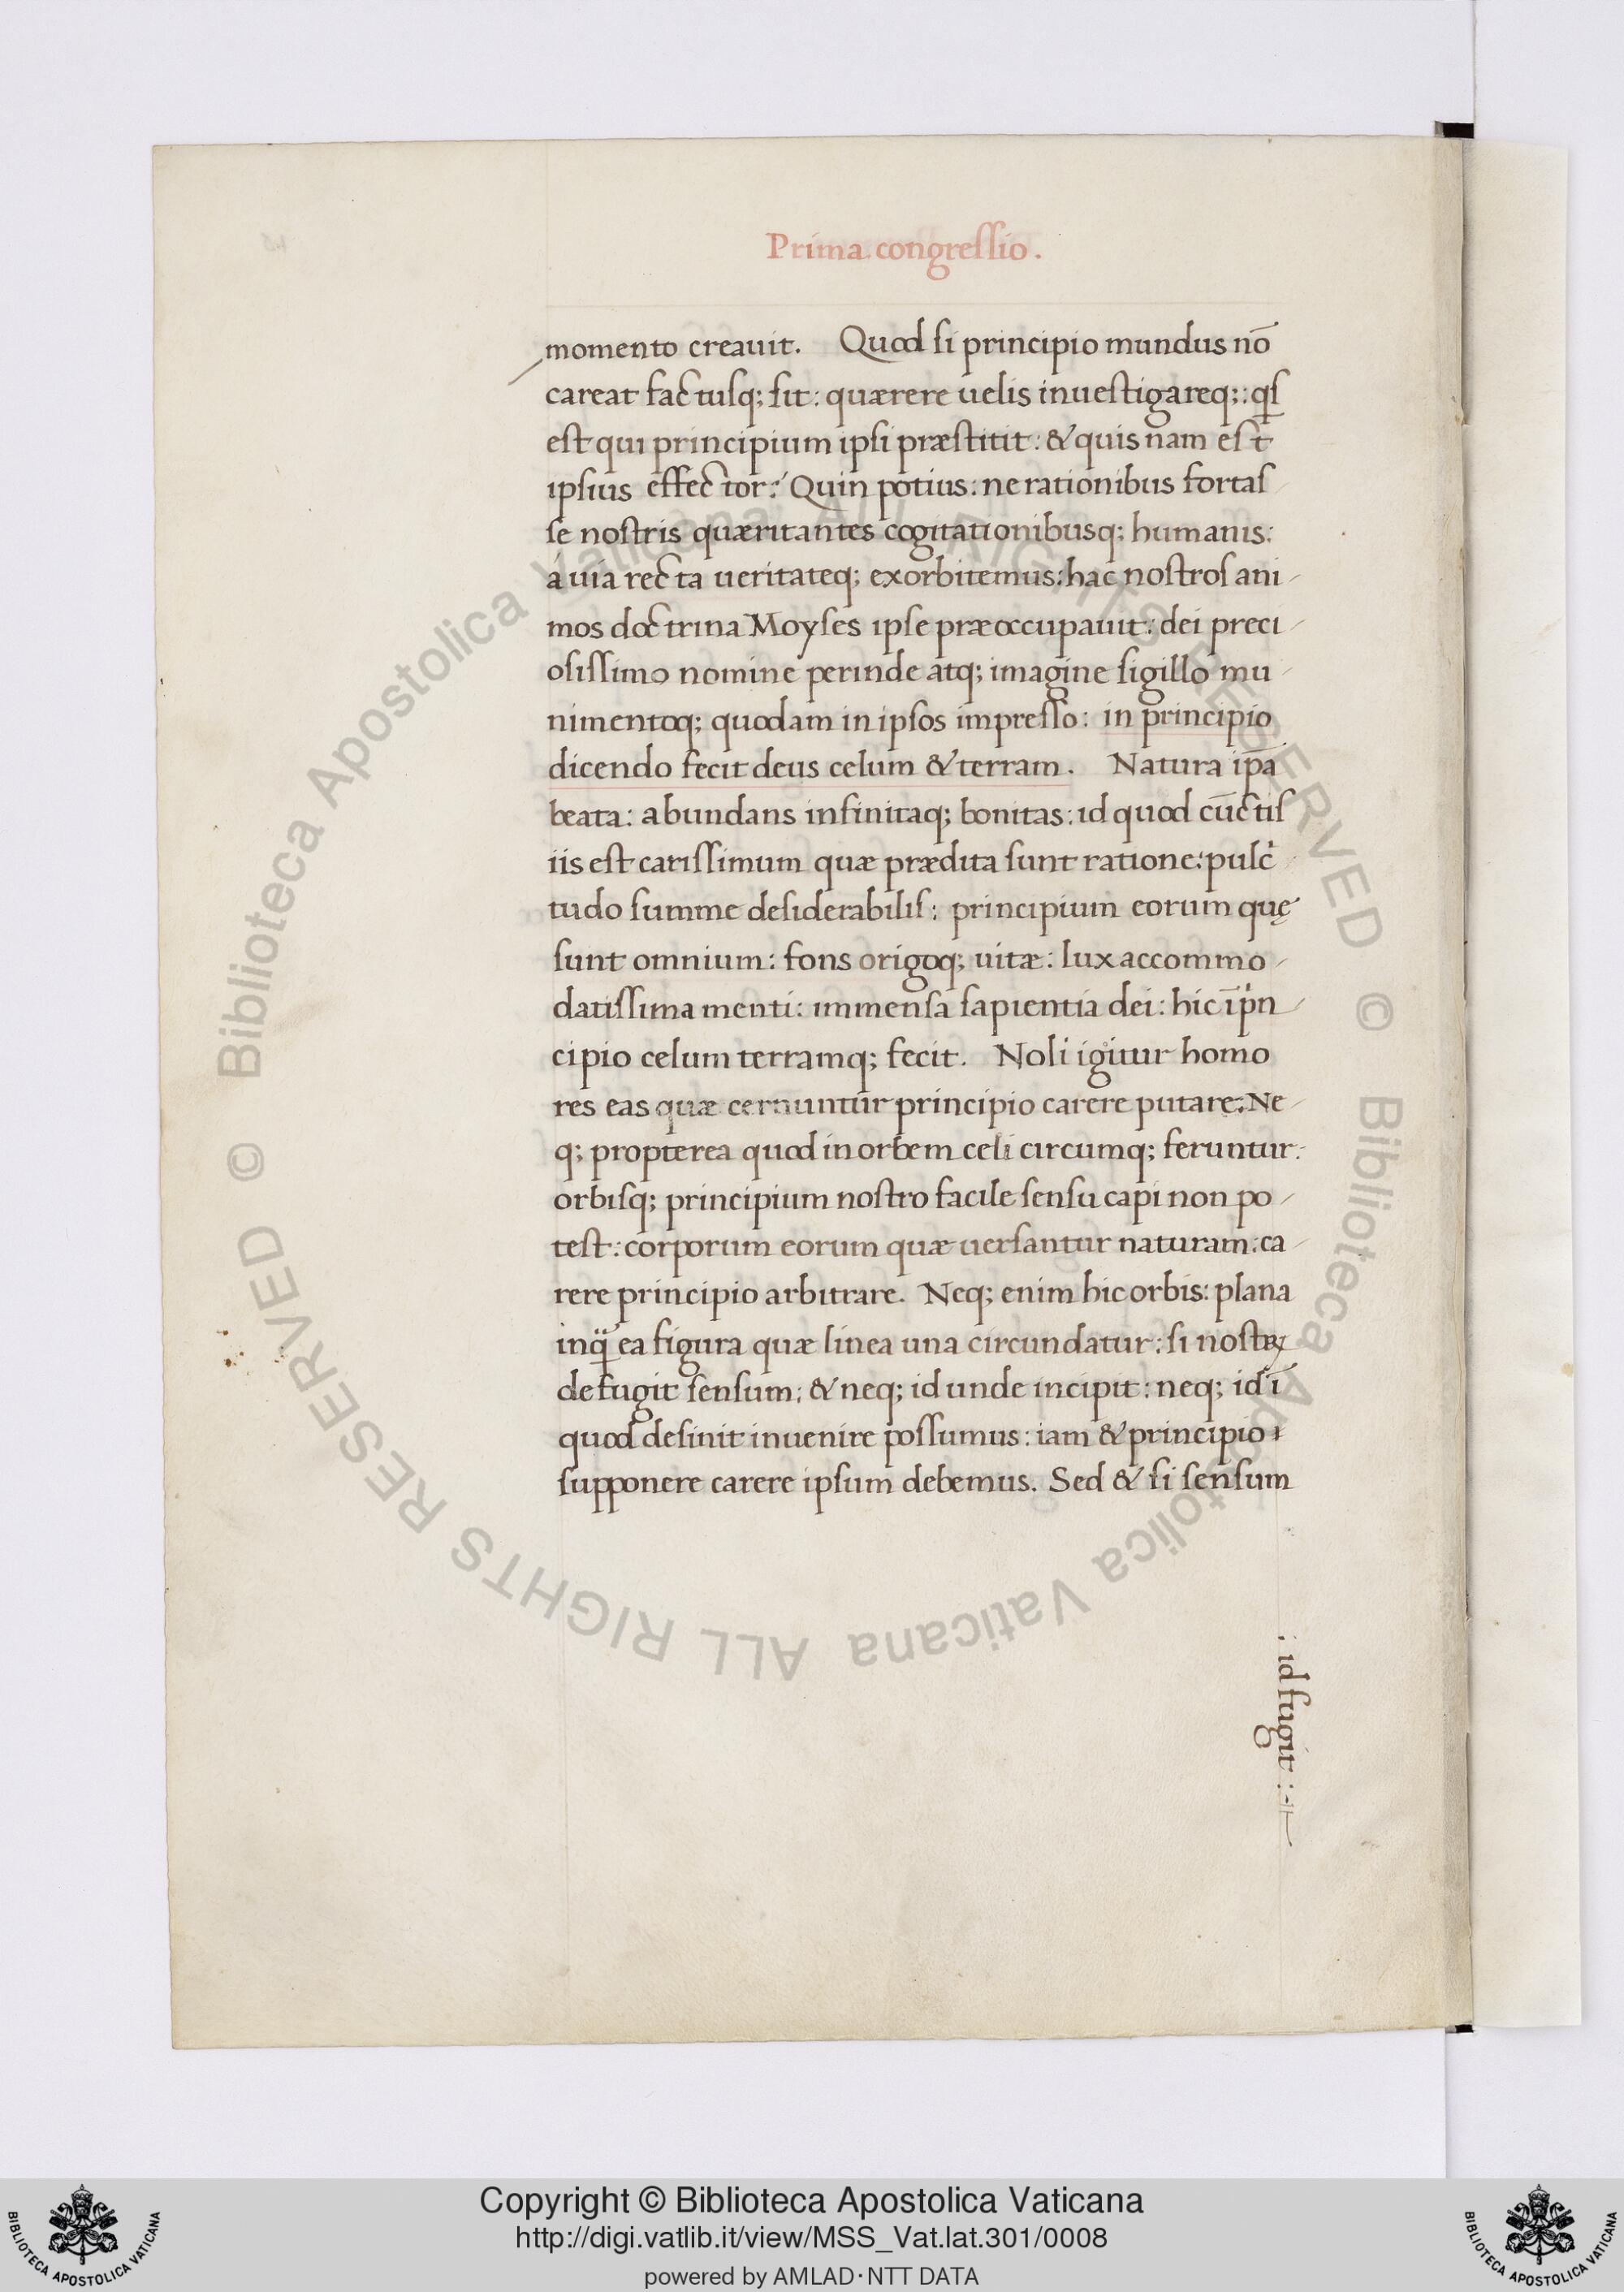 Prima congreſſio.
momento creauit. Quod ſi principio mundus nō
careat factuſq; ſit: quærere uelis inueſtigareq;: qſ
eſt qui principium ipſi præſtitit: & quis nam eſt
ipſius effector: Quin potius: ne rationibus fortaſ
ſe noſtris quæritantes cogitationibusq; humanis:
á uia recta ueritateq; exorbitemus: hac noſtroſ ani
mos doctrina Moyſes ipſe præoccupauit: dei preci
oſiſſimo nomine perinde atq; imagine ſigillo mu
nimentoq; quodam in ipſos impreſſo: in principio
dicendo fecit deus celum & terram. Natura ip̄a
beata: abundans infinitaq; bonitas: id quod cūctiſ
iis eſt cariſſimum quæ prædita ſunt ratione: pulc̓
tudo ſumme deſiderabiliſ: principium eorum quę
ſunt omnium: fons origoq; uitæ: lux accommo
datiſſima menti: immenſa ſapientia dei: hic ī pͥn
cipio celum terramq; fecit. Noli igitur homo
res eas quæ cernuntur principio carere putare: Ne
q; propterea quod in orbem celi circumq; feruntur:
orbiſq; principium noſtro facile ſenſu capi non po
teſt: corporum eorum quæ uerſantur naturam: ca
rere principio arbitrare. Neq; enim hic orbis: plana
inq̈ ea figura quæ linea una circundatur: ſi noſtꝝ
defugit ſenſum: & neq; id unde incipit: neq; id ī
quod deſinit inuenire poſſumus: iam & principio
ſupponere carere ipſum debemus. Sed & ſi ſenſum
: id fugit :
© Biblioteca Apostolica Vaticana ALL RIGHTS RESERVED
© Biblioteca Apostolica Vaticana ALL RIGHTS RESERVED
Copyright © Biblioteca Apostolica Vaticana
http://digi.vatlib.it/view/MSS_Vat.lat.301/0008
powered by AMLAD·NTT DATA
BIBLIOTECA APOSTOLICA VATICANA
BIBLIOTECA APOSTOLICA VATICANA